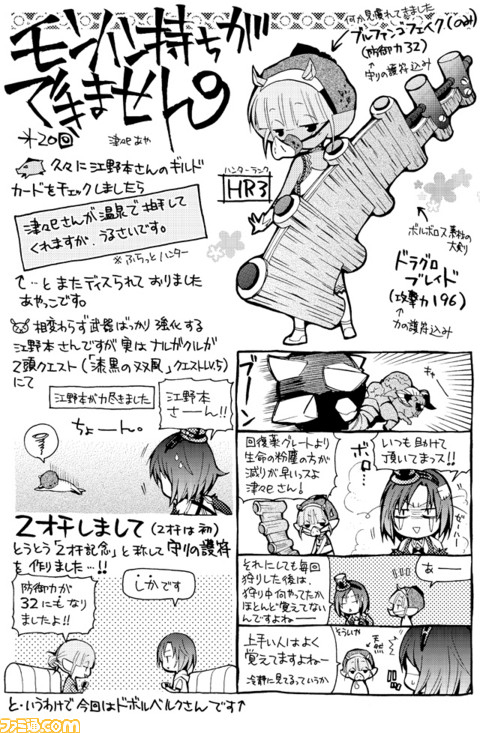 モンハン持ちが
できません。
第20回
津々巳あや
何か見慣れてきました
ブルファンゴフェイク(のみ)
(防御力32)
↑守りの護符込み
ハンターランク
HR3
ボルボロス素材の
大剣
ドラグロ
ブレイド
(攻撃力196)
↑力の護符込み
久々に江野本さんのギルド
カードをチェックしましたら
津々巳さんが温泉で拍手して
くれますが、うるさいです。
※ふらっとハンター
↑…とまたディスられておりました
あやっこです。
相変わらず武器ばっかり強化する
江野本さんですが実はナルガクルガ
2頭クエスト(「漆黒の双風」クエストLV.5)
にて
江野本が力尽きました
江野本
さーん!!
ちょーん。
2オチしまして(2オチは初)
とうとう「2オチ記念」と称して守りの護符
を作りました…!!
防御力が
32にもなり
ましたよ!!
しかです
ブーン
いつも助けて
頂いてまっス!!
回復薬グレートより
生命の粉塵の方が
減りが早いっスよ
津々巳さん!
ボロ…
ガハハー
それにしても毎回
狩りした後は、
狩り中何やってたか
ほとんど覚えてない
んですよねー
あー
上手い人はよく
覚えてますよねー
冷静に見えてるっていうか
どういか
と・いうわけで今回はドボルベルクさんです↑
ファミ通.com